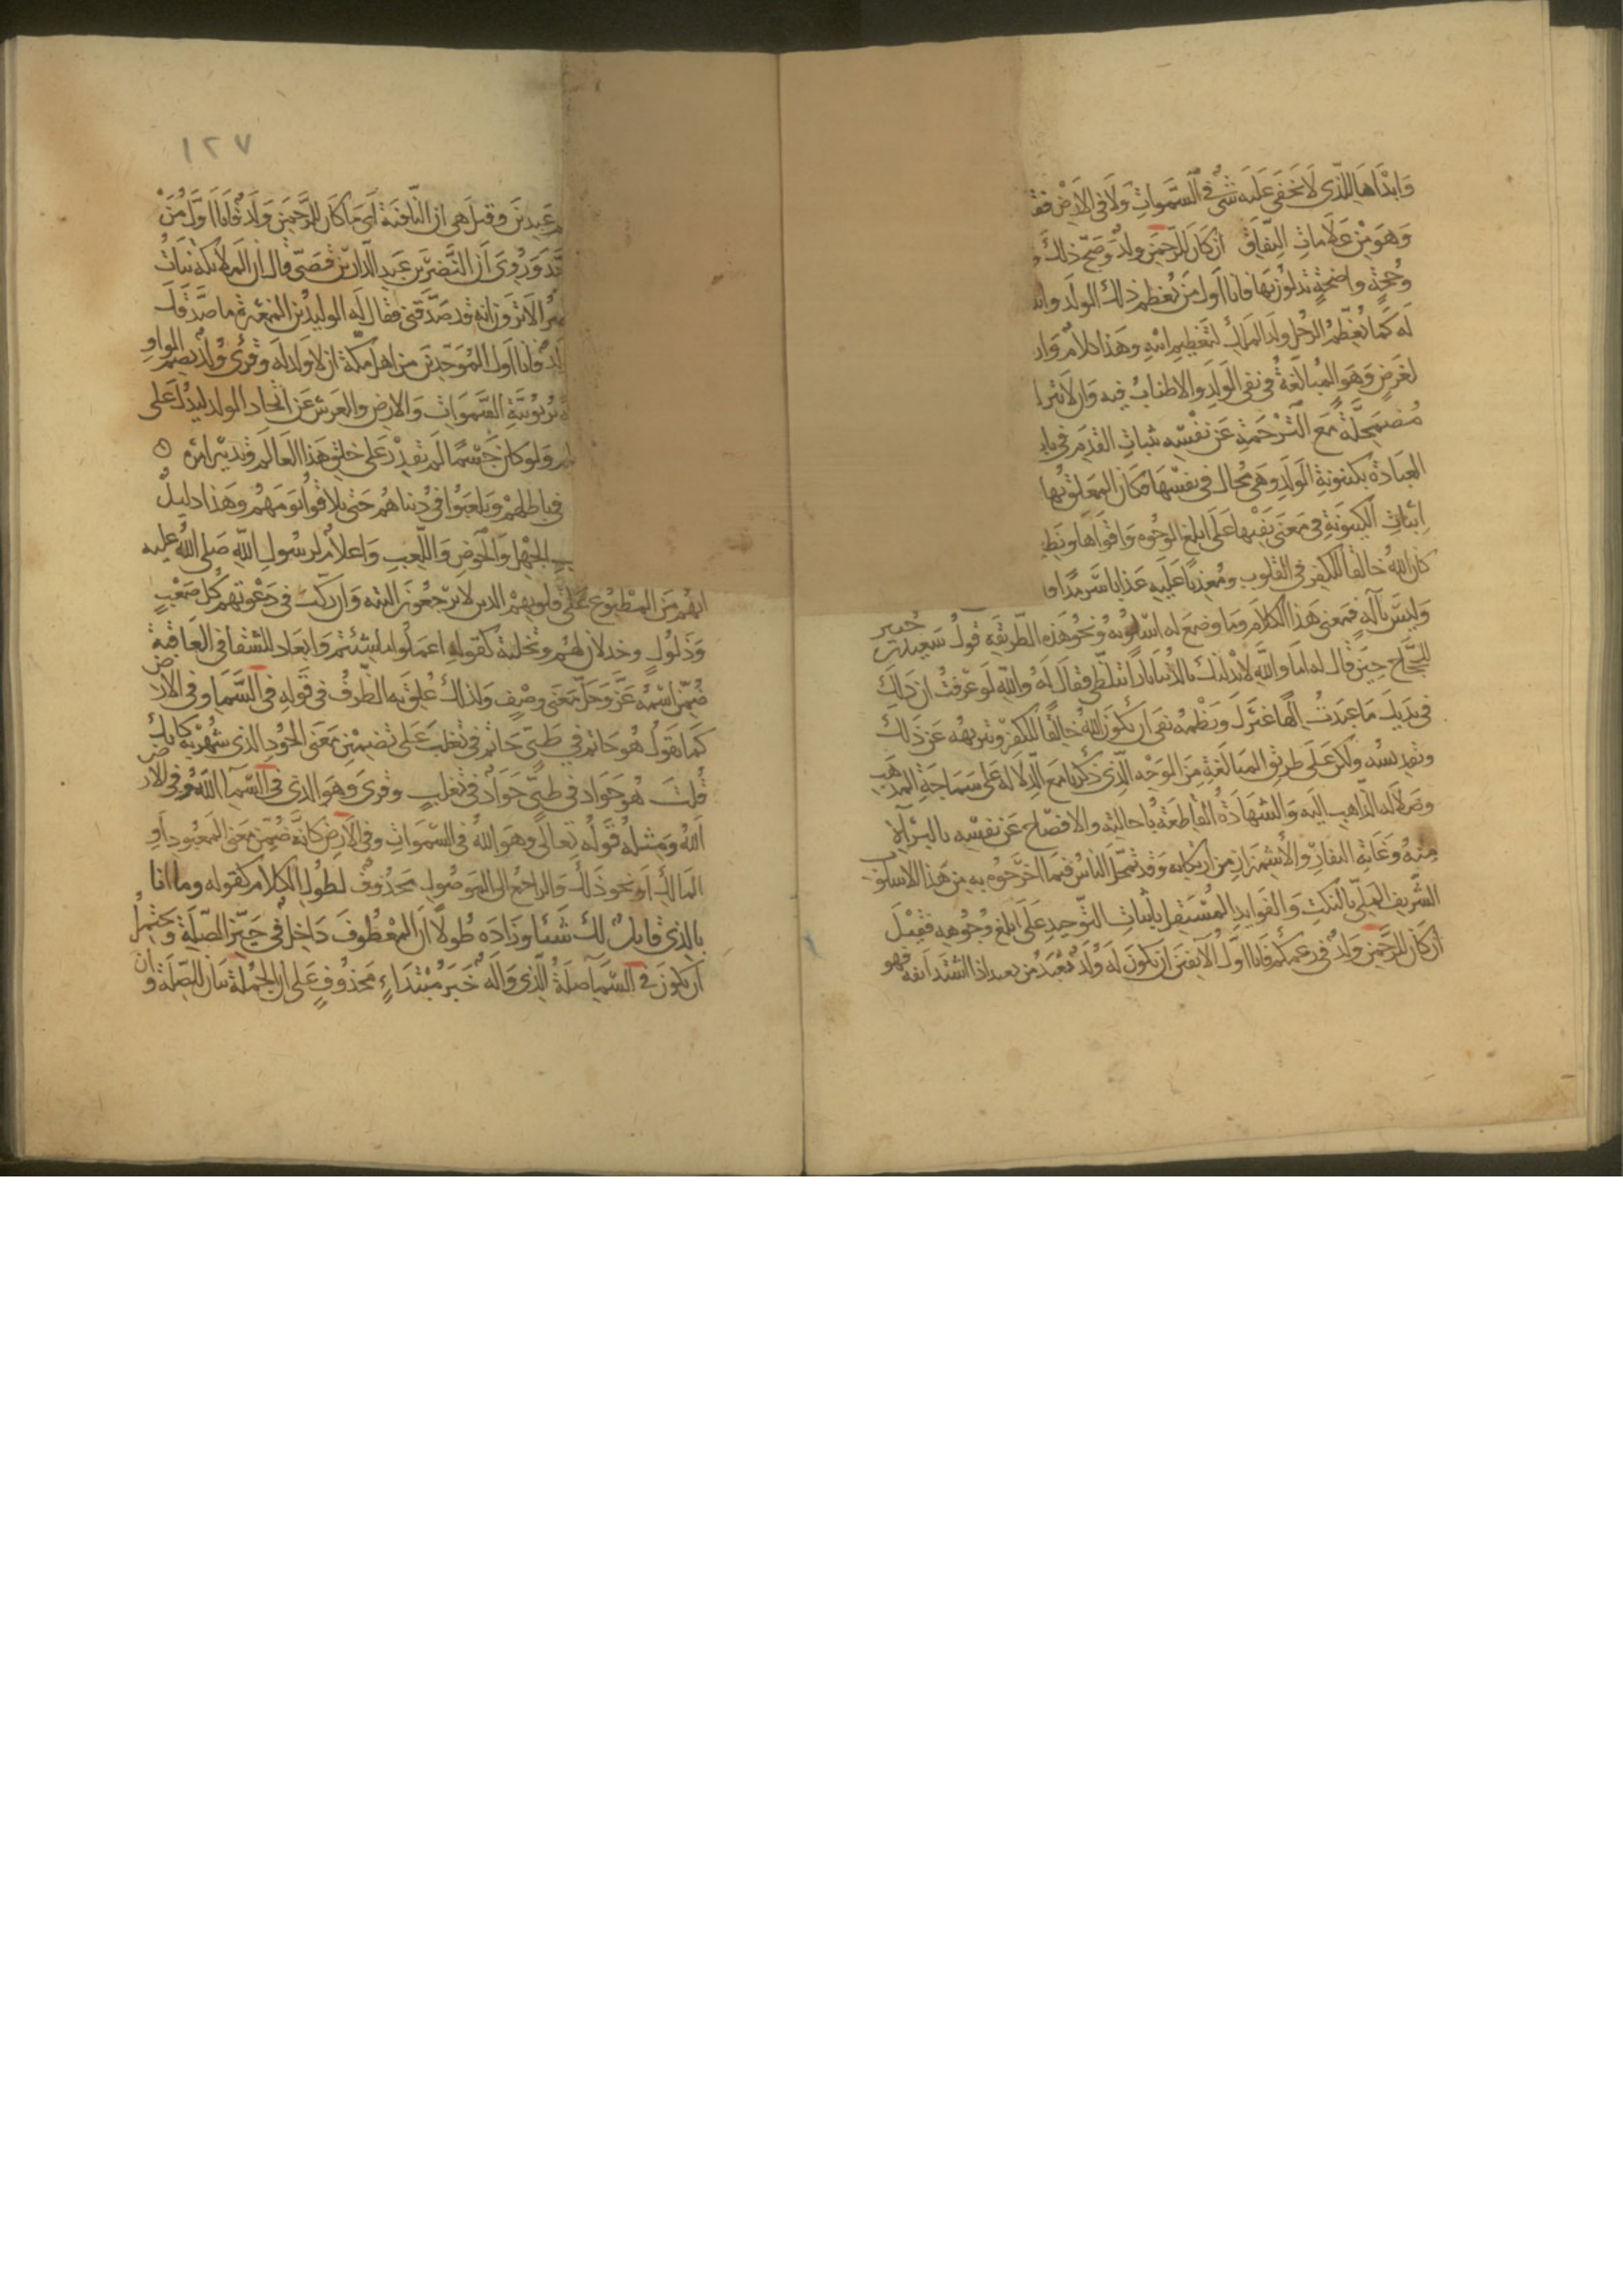 وَابْدَاهَا للذى لا يخفى عليه شىٌ فى السَّموات ولا فى الارض فقـ
وَهوَ مِن علامات النِّفاق ان كان للرّحمَن ولدٌ وَصَحّ ذلك و
وحُجّة واضحَةٍ تدلون بها فانا اول مَن يُعظم ذلك الولَد وانـ
له كما يُعَظّمُ الرجُل ولدَ الملِك لتعظيم ابيهِ وهذا كلامٌ وارد
لغرَضٍ وَهوَ المُبالغةُ فى نفى الوَلدِ والاطنابُ فيه وَان لا يترك
مُضمَحِلّة مَع التَّرجمَةِ عَن نفسِه بثباتِ القدَم فى باب
العِبَادة بكينونَةِ الوَلَدِ وهىَ مُحال فى نفسِها فكان المعَلّق بها
اثباتِ الكينونَةِ فى مَعنَى نَفيها على ابلغ الوجُوه وَاقوَاها ونظيـ
كان اللهُ خالقا للكفر فى القلوب ومُعذِّبًا عَليهِ عَذابا سَرمَدًا
وَليسَ بآلهٍ فمَعنى هَذا الكلام وما وضِعَ له اسلوبُه ونحوُ هَذه الطّريقَةِ قولُ سَعيد بن جُبير
للحجّاج حينَ قال له اما والله لابدلنّك بالدّنيا نارًا تلظى فقالَ لهُ والله لو عرَفتُ ان ذلك
فى يديك ما عبَدتُ الهًا غيرَك ونظمُه نفى ان يكونَ اللهُ خالقًا للكفر وتنزيهُه عن ذلك
وتقديسُه ولكن على طريق المبَالغةِ مِن الوَجه الذى ذكرنا مَع الدّلالة على سَمَاجَةِ المذهَب
وضَلالَه الذّاهب اليه وَالشهادَةُ القاطعَةُ باحالتِه والافصَاح عَن نفسِه بالبرآة
منهُ وغاية النفارِ والاشمئزازِ من ارتكابه وَقد تمحّل الناسُ فيما اخرَجُوه به من هَذا الاسلوب
الشّريف المَلىّ بالنكتِ وَالفوَايدِ المُستَقلّ باثباتِ التّوحيدِ عَلى ابلغ وجُوهِه فقيْلَ
ان كان للرَّحمَن وَلدٌ فى زعمكم فانا اوّلُ الآنفينَ ان يكونَ له وَلدٌ مِن عبد يعبَد اذا اشتدّ انفه فهو
١٢٧
عبِدينَ وقيل هى ان النّافيَة اى ما كان للرَّحمَن وَلَدٌ فانا اوّل مَنْ
وَرُوِىَ ان النَّضرَ بن عبد الدّار بن قصَىّ قال ان الملائكة بنات
الا تَرَون انه قد صَدَّقنى فقال له الوليدُ بن المغيرة ما صَدّقك
ـدٌ فانا اول المُوَحّدين من اهل مكة ان لا ولد له وقرئ وُلدٌ بضم الواو
ـربوبيّةِ السَّمَوَات وَالارض والعَرش عَن اتّخاذ الولد ليدُلّ عَلى
وَلو كانَ جسْمًا لَم يَقدِرْ على خلق هَذا العالم وَتدبير امره
فى باطلهمْ وَيَلعبُوا فى دُنياهُم حَتى يلاقوا يَومَهُم وهذا دليلٌ
الجهلِ وَالخَوضِ وَاللّعِب وَاعلامٌ لرسُولِ الله صَلى اللهُ عليه
انهُم مِنَ المطبُوعِ عَلى قلوبهمُ الذين لا يرجعُونَ البتة وَان ركّب فى دَعوتهِم كُل صَعْبٍ
وَذلُولٍ وخذلان لهُم وتخليَة كقولِهِ اعمَلوا ما شئتم وَابعاد للشقا فى العَاقبة
ضُمّنَ اسمُهُ عَزَّ وجَلَّ معنى وصْفٍ وَلذلك عُلِّقَ به الظَّرفُ فى قولهِ فى السَّمَا وفى الارض
كمَا تقولُ هُوَ حَاتمٌ فى طىّ حَاتمٌ فى تَغلبَ عَلى تضمين مَعنى الجُودِ الذى شُهِرَ بهِ كانك
قُلتَ هُوَ جوَادٌ فى طىّ جَوَادٌ فى تغلب وقرئَ وَهوَ الذى فى السّمآ اللهُ وفى الارض
اللهُ ومِثلُهُ قَولُه تعالى وهوَ اللهُ فى السّمواتِ وفى الارض كانّه ضُمِّنَ مَعنى المعبُود او
المَالك او نحو ذلك وَالرّاجعُ الى الموصُول محذُوفٌ لطُول الكلام كقوله وما انا
بالذى قايلٌ لك شَيئا وزادَه طولا ان المعطوفَ دَاخِلٌ فى حَيّز الصّلَة وَيحتمِلُ
ان يكونَ فى السّمآ صلَةُ الّذى وَاله خَبَرُ مُبتَدَاءٍ محذوُفٍ عَلى ان الجُملَة بيانٌ للصّلة وان